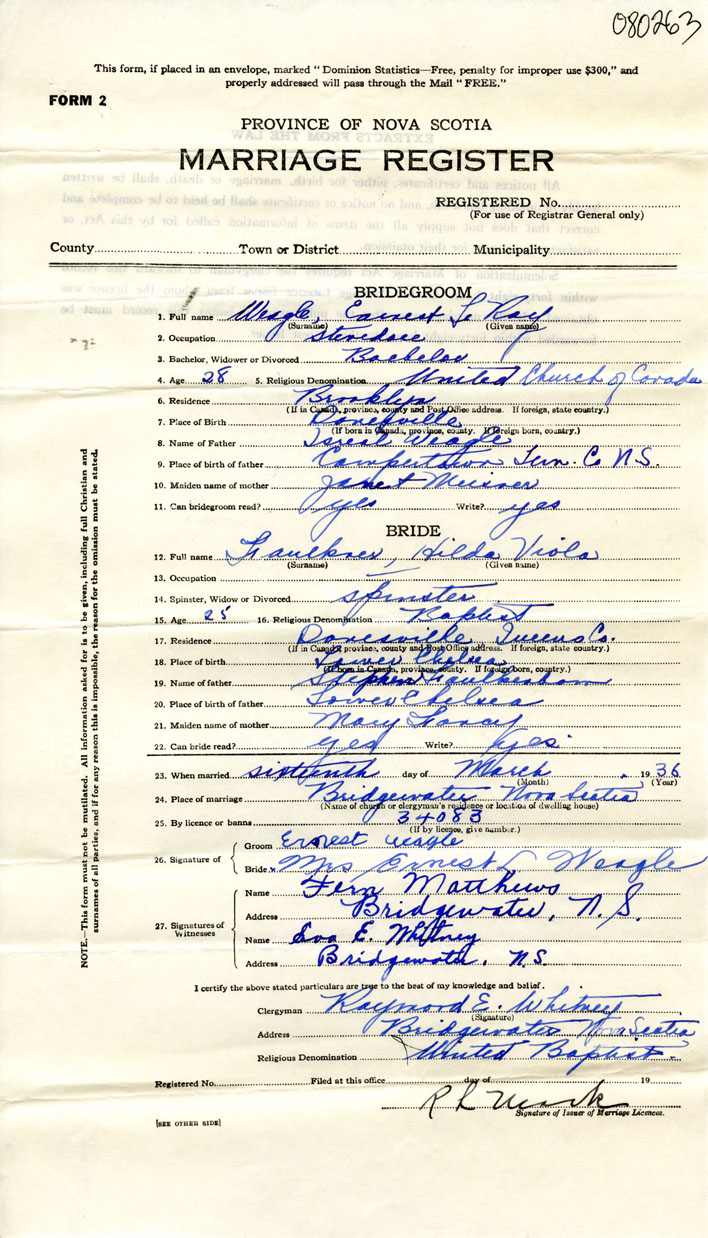 080263
This form, if placed in an envelope, marked "Dominion Statistics—Free, penalty for improper use $300," and
properly addressed will pass through the Mail "FREE."
FORM 2
PROVINCE OF NOVA SCOTIA
MARRIAGE REGISTER
REGISTERED No.
(For use of Registrar General only)
County Town or District Municipality
BRIDEGROOM
1. Full name Weagle, Earnest Le Roy
(Surname) (Given name)
2. Occupation Stevedore
3. Bachelor, Widower or Divorced Bachelor
4. Age 28 5. Religious Denomination United Church of Canada
6. Residence Brooklyn
(If in Canada, province, county and Post Office address. If foreign, state country.)
7. Place of Birth Danesville
(If born in Canada, province, county. If foreign born, country.)
8. Name of Father Weagle
9. Place of birth of father Camperdown Lun. Co N.S.
10. Maiden name of mother Janet Meisner
11. Can bridegroom read? yes Write? yes
BRIDE
12. Full name Faulkner, Hilda Viola
(Surname) (Given name)
13. Occupation
14. Spinster, Widow or Divorced spinster
15. Age 25 16. Religious Denomination Baptist
17. Residence Danesville Queens Co.
(If in Canada, province, county and Post Office address. If foreign, state country.)
18. Place of birth Lower Chelsea
(If born in Canada, province, county. If foreign born, country.)
19. Name of father Stephen
20. Place of birth of father Lower Chelsea
21. Maiden name of mother Mary
22. Can bride read? yes Write? yes
23. When married sixteenth day of March 1936
(Month) (Year)
24. Place of marriage Bridgewater Nova Scotia
(Name of church or clergyman's residence or location of dwelling house)
25. By licence or banns 34083
(If by licence, give number.)
26. Signature of
Groom Ernest weagle
Bride Mrs Ernest L Weagle
27. Signatures of Witnesses
Name Fern Matthews
Address Bridgewater, N.S.
Name Eva E. Whitney
Address Bridgewater, N.S.
I certify the above stated particulars are true to the best of my knowledge and belief.
Clergyman Raymond E. Whitney
(Signature)
Address Bridgewater Nova Scotia
Religious Denomination United Baptist.
Registered No. Filed at this office day of 19
R L
Signature of Issuer of Marriage Licences.
[SEE OTHER SIDE]
NOTE.—This form must not be mutilated. All information asked for is to be given, including full Christian and
surnames of all parties, and if for any reason this is impossible, the reason for the omission must be stated.